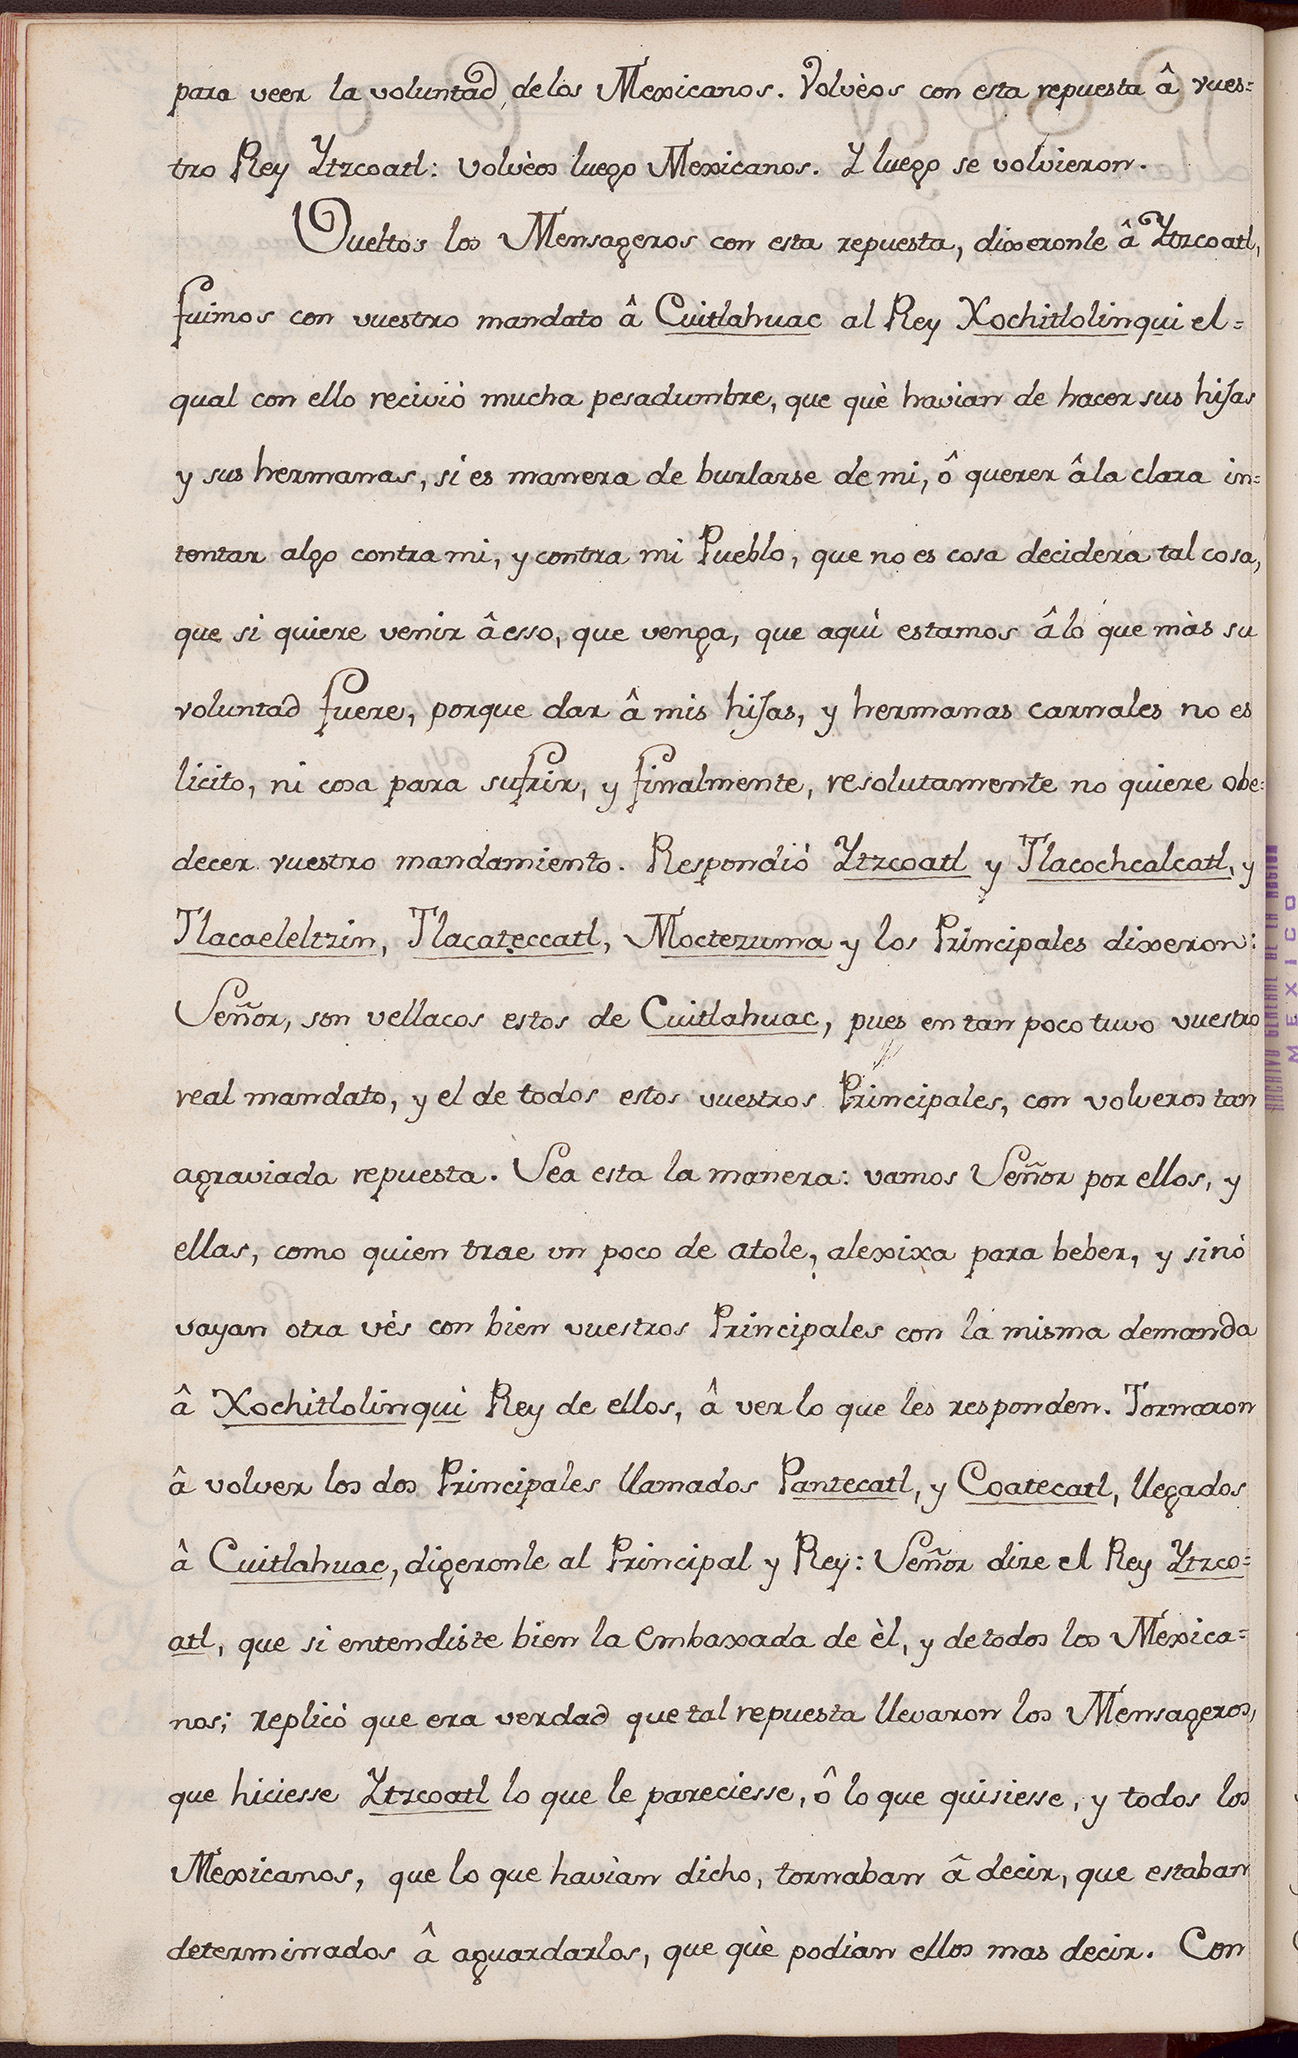 para veer la voluntad de los Mexicanos. Volvèos con esta repuesta â vues=
tro Rey Ytzcoatl: volvèos luego Mexicanos. Y luego se volvieron.
Vueltos los Mensageros con esta repuesta, dixeronle â Ytzcoatl,
fuimos con vuestro mandato â Cuitlahuac al Rey Xochitlolinqui el=
qual con ello reciviò mucha pesadumbre, que què havian de hacer sus hijas
y sus hermanas, si es manera de burlarse de mi, ô querer â la clara in=
tentar algo contra mi, y contra mi Pueblo, que no es cosa decidera tal cosa,
que si quiere venir â esso, que venga, que aquì estamos â lo que màs su
voluntad fuere, porque dar â mis hijas, y hermanas carnales no es
licito, ni cosa para sufrir, y finalmente, resolutamente no quiere obe=
decer vuestro mandamiento. Respondiò Ytzcoatl y Tlacochcalcatl, y
Tlacaeleltzin, Tlacateccatl, Moctezuma y los Principales dixeron:
Señor, son vellacos estos de Cuitlahuac, pues en tan poco tuvo vuestro
real mandato, y el de todos estos vuestros Principales, con volveros tan
agraviada repuesta. Sea esta la manera: vamos Señor por ellos, y
ellas, como quien trae un poco de atole, alexixa para beber, y sinò
vayan otra vès con bien vuestros Principales con la misma demanda
â Xochitlolinqui Rey de ellos, â ver lo que les responden. Tornaron
â volver los dos Principales llamados Pantecatl, y Coatecatl, llegados
â Cuitlahuac, digeronle al Principal y Rey: Señor dize el Rey Ytzco=
atl, que si entendiste bien la embaxada de èl, y de todos los Mexica=
nos; replicò que era verdad que tal repuesta llevaron los Mensageros,
que hiciesse Ytzcoatl lo que le pareciesse, ô lo que quisiesse, y todos los
Mexicanos, que lo que havìan dicho, tornaban â decir, que estaban
determinados â aguardarlos, que què podìan ellos mas decir. Con
ARCHIVO GENERAL DE LA NACION
MEXICO